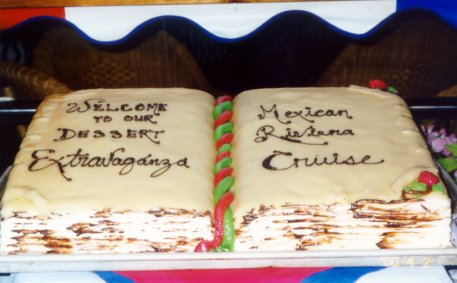 Welcome
to our
Dessert
Extravaganza
Mexican
Riviera
Cruise